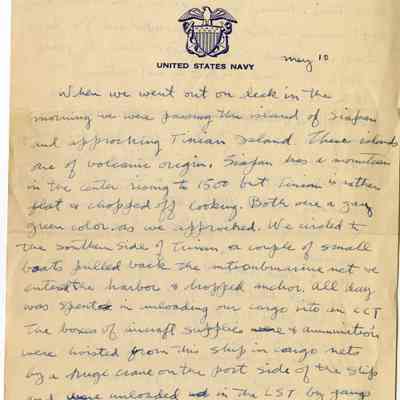 UNITED STATES NAVY
May 10
When we went out on deck in the
morning we were passing the island of Siafan
and approching Tinian Island. These islands
are of volcanic origin. Siafan has a mountain
in the center rising to 1500 but Tinian is rather
flat & chopped off looking. Both were a gray
green color as we approched. We circled to
the southern side of Tinian, a couple of small
boats pulled back the antisubmarine net we
entered the harbor & dropped anchor. All day
was spent in unloading our cargo into an LCT
The boxes of aircraft supplies & ammunition
were hoisted from this ship in cargo nets
by a huge crane on the port side of the ship
and were unloaded in the LST by gangs